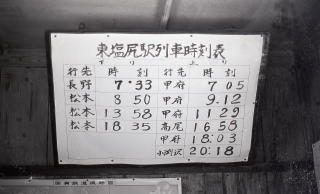 東塩尻駅列車時刻表
下り 上り
行先 時刻 行先 時刻
長野 7.33 甲府 7 05
松本 8 50 甲府 9.12
松本 13 58 甲府 11 29
松本 18 35 高尾 16 58
甲府 18:03
小渕沢 20:18